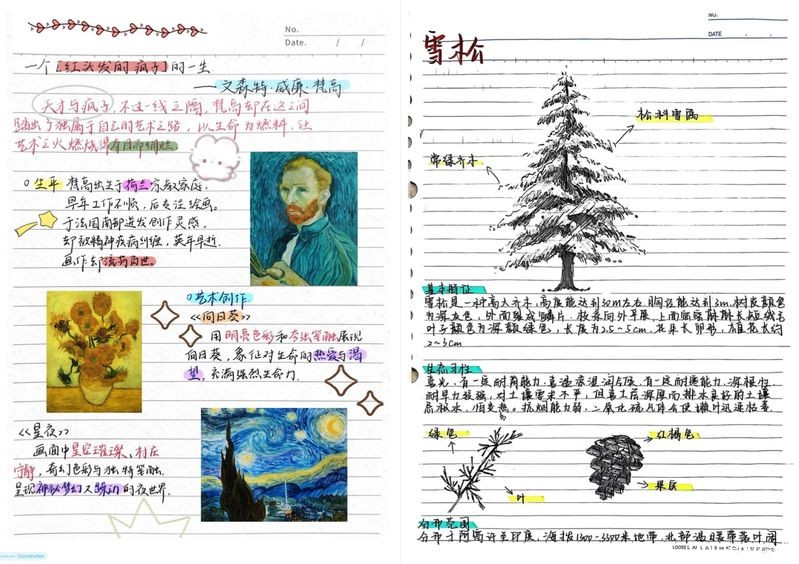 No.
Date. / /
一个[红头发的疯子]的一生
——文森特·威廉·梵高
天才与疯子不过一线之隔，梵高却在这之间
踏出了独属于自己的艺术之路，以生命为燃料，让
艺术之火燃烧得有目而绚烂
生平 梵高出生于荷兰宗教家庭，
早年工作不顺，后专注绘画。
于法国南部迸发创作灵感，
却被精神疾病纠缠，英年早逝
画作却流芳百世。
艺术创作
《向日葵》
用明亮色彩和夸张笔触展现
向日葵，象征对生命的热爱与渴
望，充满强烈生命力
《星夜》
画面中星空璀璨、村庄
宁静，奇幻色彩与独特笔触
呈现神秘梦幻又躁动的夜世界.
Goodnotes
NO.
DATE
雪松
松科雪属
常绿乔木
基本特征
雪松是一种高大乔木，高度能达到50m左右，胸径能达到3m.树皮颜色
为深灰色，外面裂成鳞片，枝条向外平展，上面
叶子颜色为深绿色，长度为2.5~5cm，长卵形，雄花长约
2~3cm
生态习性
喜光，有一定耐荫能力，喜温凉湿润气候，有一定耐寒能力，深根性
耐旱力较强，对土壤要求不严，但喜土层深厚而排水良好的土壤
忌积水，怕炎热。抗烟能力弱，二氧化硫气体会使嫩叶迅速枯萎.
绿色
叶
红褐色
果层
分布范围
分布于阿富汗至印度，海拔1300~3300米地带，北部温暖带落叶阔